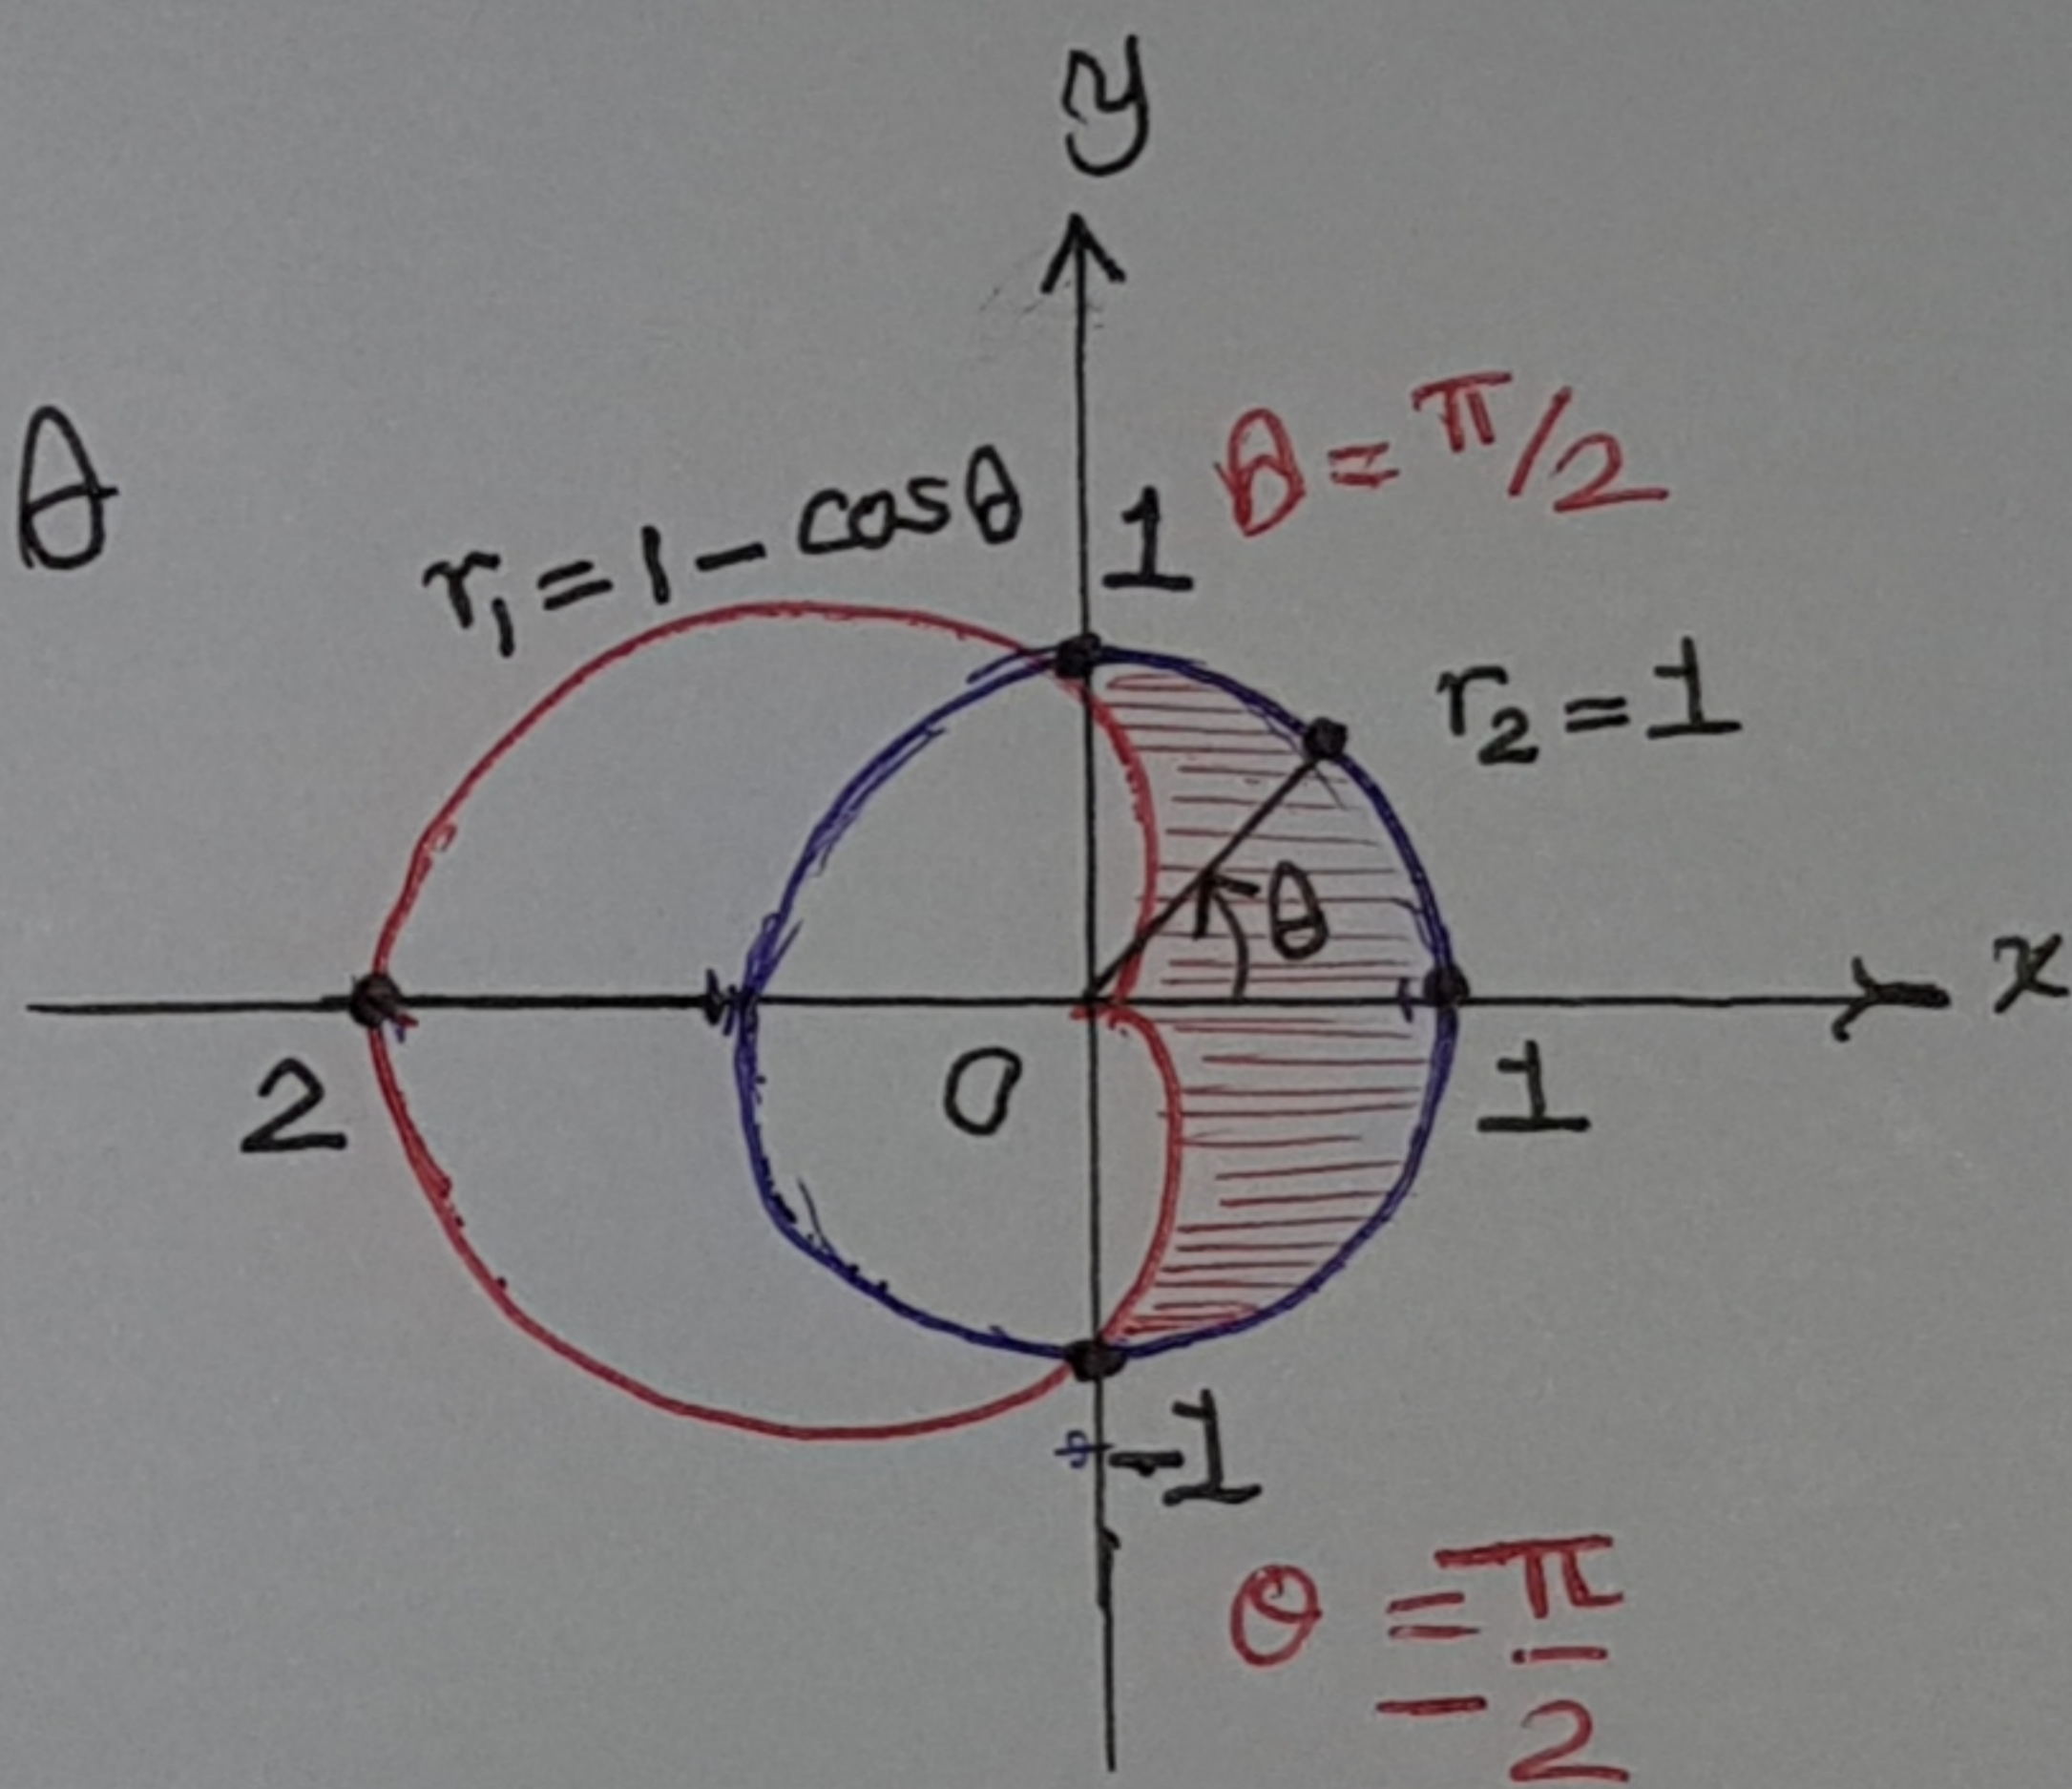 y
θ
θ = π/2
r₁ = 1 - cosθ
1
r₂ = 1
θ
x
2
0
1
-1
θ = -π/2